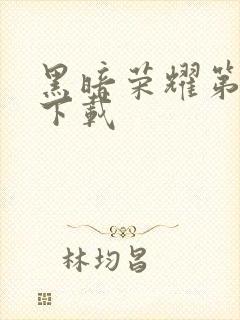 黑暗荣耀第
下载
林均昌